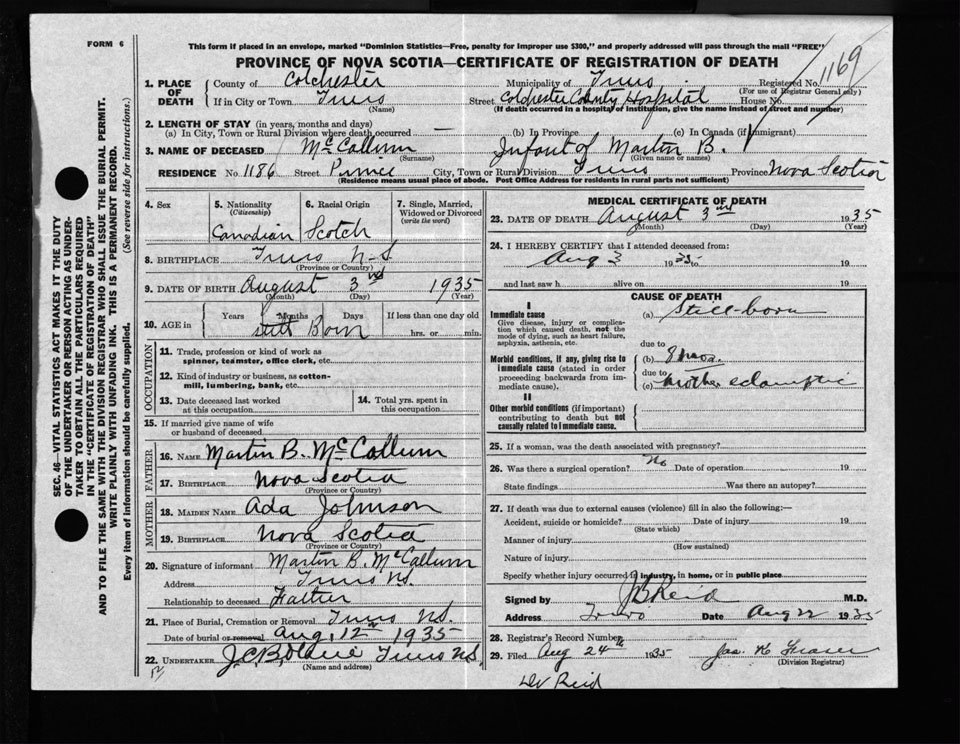 FORM 6
This form if placed in an envelope, marked "Dominion Statistics—Free, penalty for improper use $300," and properly addressed will pass through the mail "FREE"
PROVINCE OF NOVA SCOTIA—CERTIFICATE OF REGISTRATION OF DEATH
1169
SEC. 46—VITAL STATISTICS ACT MAKES IT THE DUTY
OF THE UNDERTAKER OR PERSON ACTING AS UNDER-
TAKER TO OBTAIN ALL THE PARTICULARS REQUIRED
IN THE "CERTIFICATE OF REGISTRATION OF DEATH"
AND TO FILE THE SAME WITH THE DIVISION REGISTRAR WHO SHALL ISSUE THE BURIAL PERMIT.
WRITE PLAINLY WITH UNFADING INK. THIS IS A PERMANENT RECORD.
Every item of information should be carefully supplied. (See reverse side for instructions.)
1. PLACE OF DEATH
County of Colchester Municipality of Truro Registered No.
(For use of Registrar General only)
If in City or Town Truro Street Colchester County Hospital House No.
(Name) (If death occurred in a hospital or institution, give the name instead of street and number)
2. LENGTH OF STAY (in years, months and days)
(a) In City, Town or Rural Division where death occurred — (b) In Province (c) In Canada (if immigrant)
3. NAME OF DECEASED McCallum Infant of Martin B.
(Surname) (Given name or names)
RESIDENCE No. 1186 Street Prince City, Town or Rural Division Truro Province Nova Scotia
(Residence means usual place of abode. Post Office Address for residents in rural parts not sufficient)
4. Sex
5. Nationality (Citizenship) Canadian
6. Racial Origin Scotch
7. Single, Married, Widowed or Divorced (write the word)
8. BIRTHPLACE Truro N-S
(Province or Country)
9. DATE OF BIRTH August 3rd 1935
(Month) (Day) (Year)
10. AGE in Years Months Days If less than one day old
Still Born hrs. or min.
OCCUPATION
11. Trade, profession or kind of work as
spinner, teamster, office clerk, etc.
12. Kind of industry or business, as cotton-
mill, lumbering, bank, etc.
13. Date deceased last worked at this occupation
14. Total yrs. spent in this occupation
15. If married give name of wife
or husband of deceased
FATHER
16. NAME Martin B. McCallum
17. BIRTHPLACE Nova Scotia
(Province or Country)
MOTHER
18. MAIDEN NAME Ada Johnson
19. BIRTHPLACE Nova Scotia
(Province or Country)
20. Signature of informant Martin B. McCallum
Address Truro NS.
Relationship to deceased Father
21. Place of Burial, Cremation or Removal Truro NS.
Date of burial or removal Aug. 12 1935
22. UNDERTAKER Truro NS.
(Name and address)
MEDICAL CERTIFICATE OF DEATH
23. DATE OF DEATH August 3rd 1935
(Month) (Day) (Year)
24. I HEREBY CERTIFY that I attended deceased from:
Aug 3 1935 to 19
and last saw h alive on 19
CAUSE OF DEATH
I
Immediate cause
Give disease, injury or complica-
tion which caused death, not the
mode of dying, such as heart failure,
asphyxia, asthenia, etc.
(a) Still-born
due to
Morbid conditions, if any, giving rise to
immediate cause (stated in order
proceeding backwards from im-
mediate cause).
(b) 8 mos.
due to
(c) mother eclamptic
II
Other morbid conditions (if important)
contributing to death but not
causally related to immediate cause.
25. If a woman, was the death associated with pregnancy?
26. Was there a surgical operation? No Date of operation 19
State findings Was there an autopsy?
27. If death was due to external causes (violence) fill in also the following:—
Accident, suicide or homicide? Date of injury 19
(State which)
Manner of injury
(How sustained)
Nature of injury
Specify whether injury occurred in industry, in home, or in public place
Signed by J B Reid M.D.
Address Truro Date Aug 22 1935
28. Registrar's Record Number
29. Filed Aug 24th 1935 Jas. H. Fraser
(Division Registrar)
Dr Reid